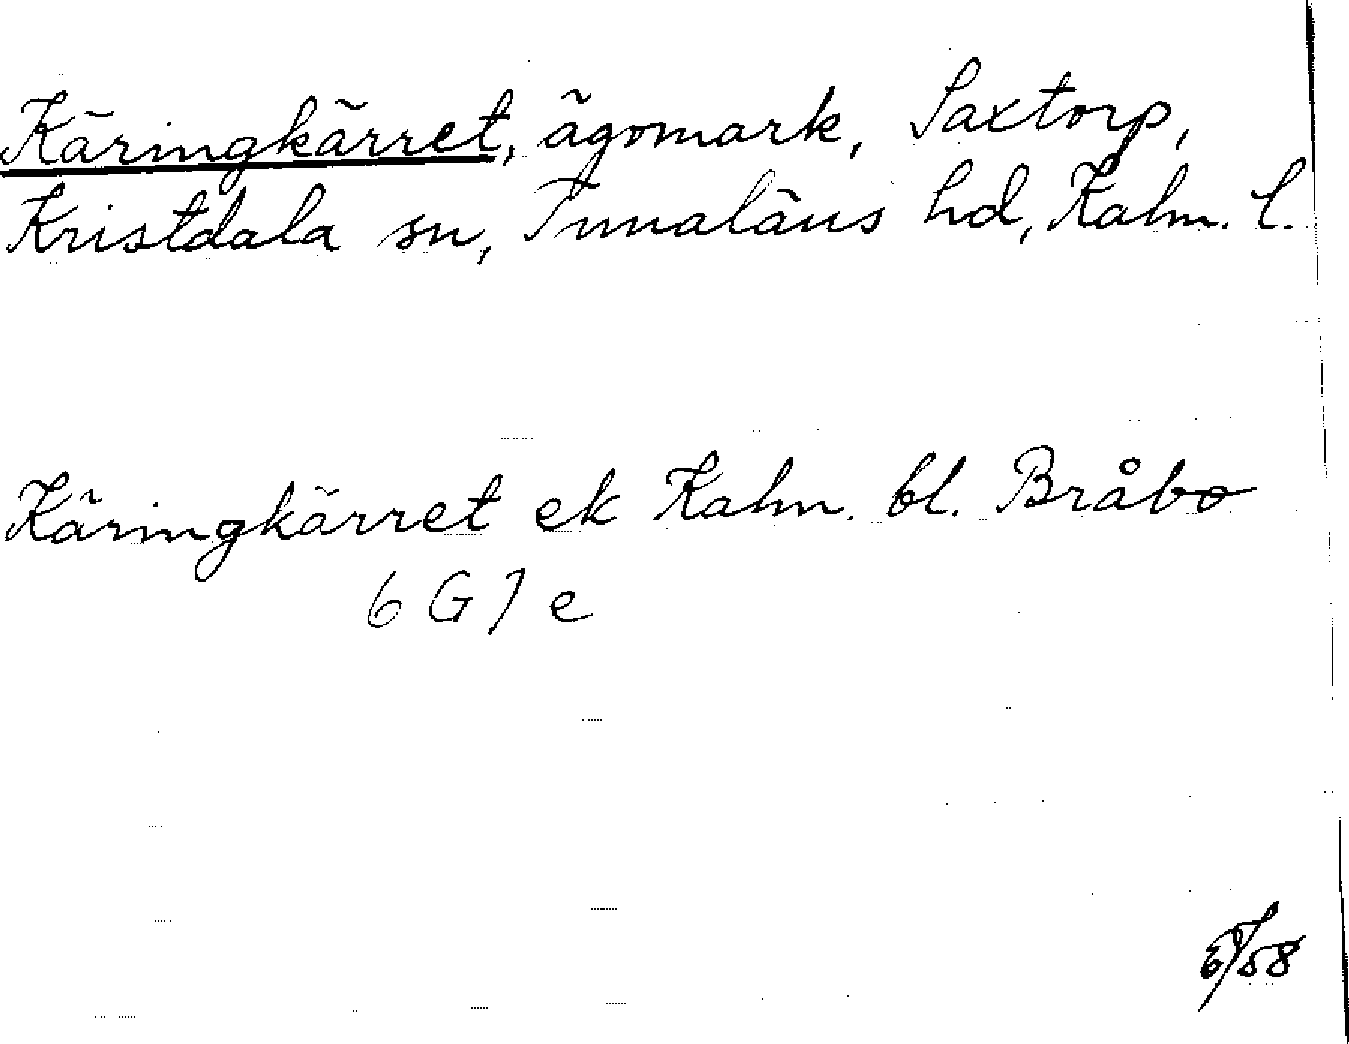 Käringkärret, ägomark, Saxtorp,
Kristdala sn, Tunaläns hd, Kalm. l.
Käringkärret ek Kalm. bl. Bråbo
6 G 7 e